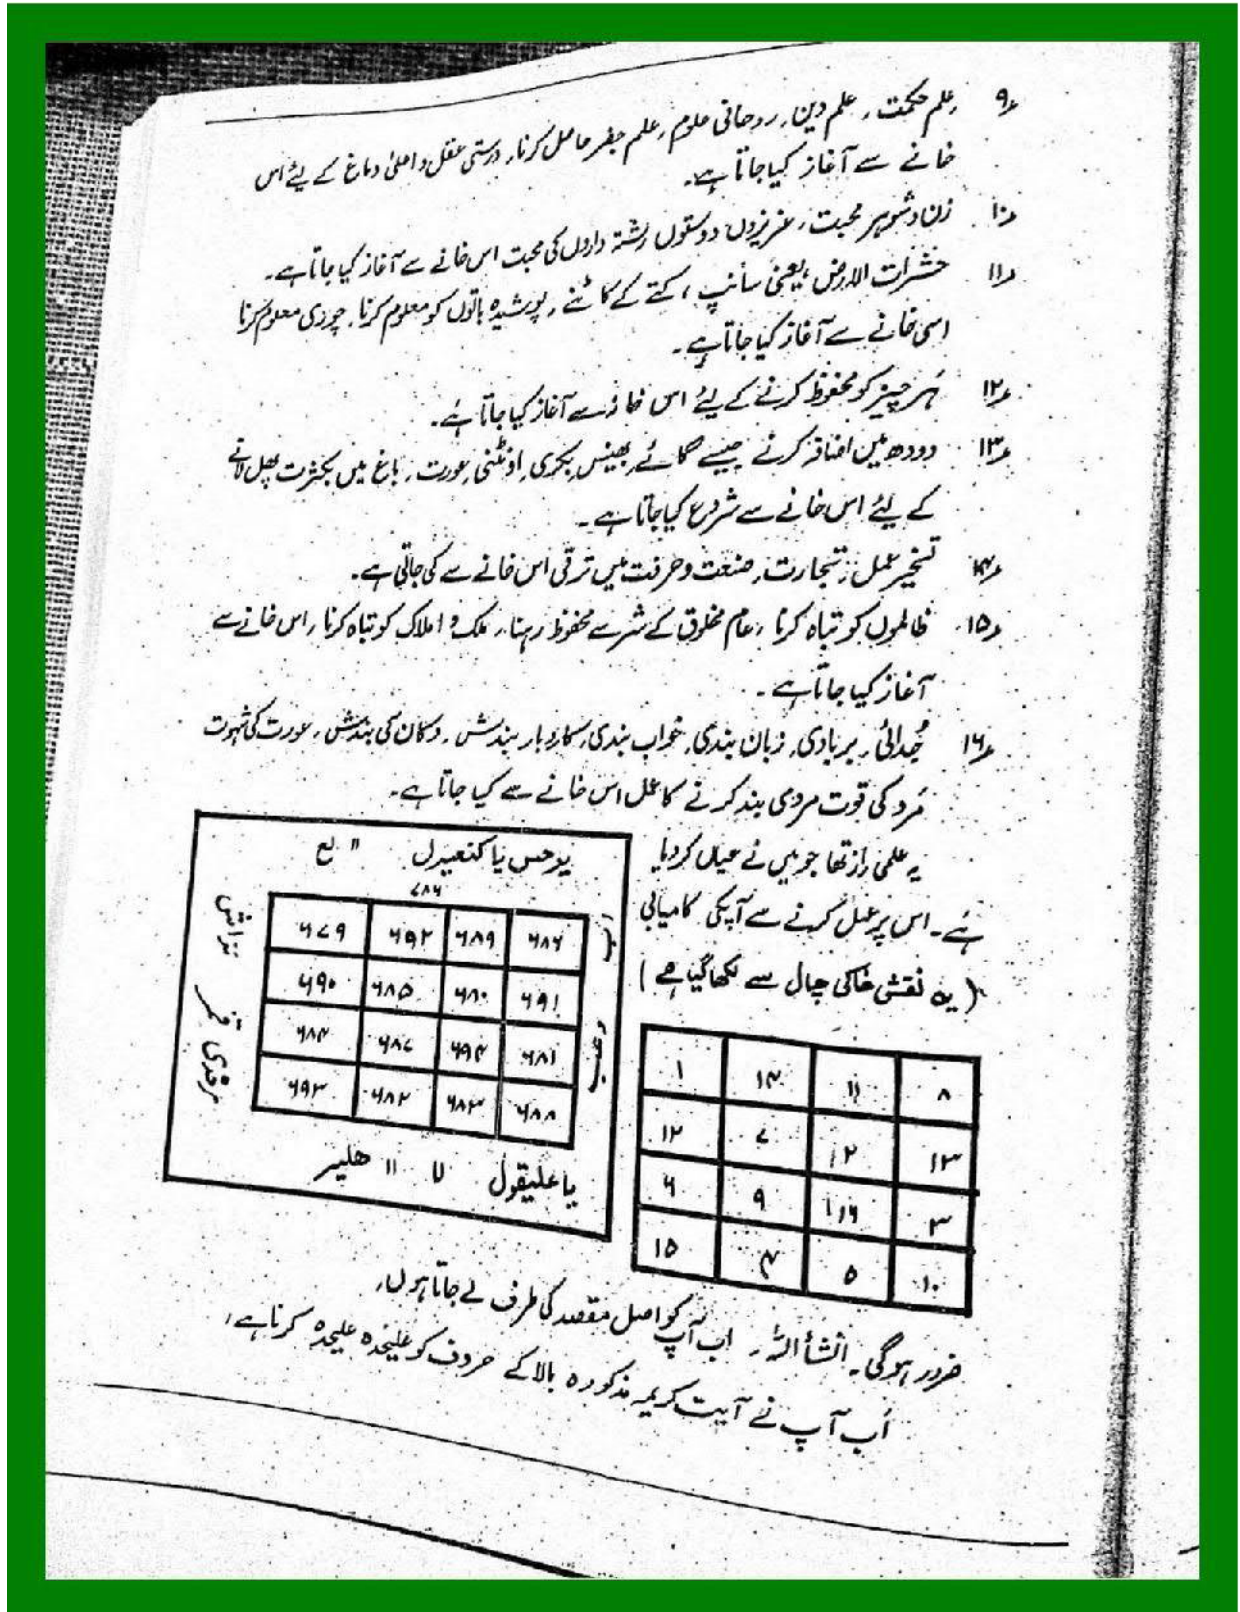 ۹؍ علم حکمت، علم دین، روحانی علوم، علم جفر حاصل کرنا، درستی عقل و اعلیٰ دماغ کے لئے اس
خانے سے آغاز کیا جاتا ہے۔
۱۰؍ زن و شوہر محبت، عزیزوں دوستوں رشتہ داروں کی محبت اس خانے سے آغاز کیا جاتا ہے۔
۱۱؍ حشرات الارض، یعنی سانپ، کتے کے کاٹنے، پوشیدہ باتوں کو معلوم کرنا، چوری معلوم کرنا
اسی خانے سے آغاز کیا جاتا ہے۔
۱۲؍ ہر چیز کو محفوظ کرنے کے لئے اس خانہ سے آغاز کیا جاتا ہے۔
۱۳؍ دودھ میں اضافہ کرنے جیسے گائے، بھینس، بکری، اونٹنی، عورت، باغ میں بکثرت پھل لانے
کے لئے اس خانے سے شروع کیا جاتا ہے۔
۱۴؍ تسخیر عمل، تجارت، صنعت و حرفت میں ترقی اس خانے سے کی جاتی ہے۔
۱۵؍ ظالموں کو تباہ کرنا، عام مخلوق کے شر سے محفوظ رہنا، ملک و املاک کو تباہ کرنا، اس خانے سے
آغاز کیا جاتا ہے۔
۱۶؍ جُدائی، بربادی، زبان بندی، خواب بندی، کاروبار بندش، دکان کی بندش، عورت کی شہوت
مَرد کی قوت مردی بند کرنے کا عمل اس خانے سے کیا جاتا ہے۔
یہ علمی راز تھا جو میں نے عیاں کر دیا
ہے۔ اس پر عمل کرنے سے آپکی کامیابی
(یہ نقش خاکی چال سے لکھا گیا ہے)
۸ ۱۱ ۱۴ ۱
۱۳ ۱۲ ۷ ۱۲
۳ ۱۱۶ ۹ ۶
۱۰ ۵ ۴ ۱۵
۷۸۶
۶۸۶ ۶۸۹ ۶۹۲ ۶۷۹
۶۹۱ ۶۸۰ ۶۸۵ ۶۹۰
۶۸۱ ۶۹۴ ۶۸۷ ۶۸۴
۶۸۸ ۶۸۳ ۶۸۲ ۶۹۳
یا علیقول
ضرور ہوگی۔ انشأاللہ۔ اب آپ کو اصل مقصد کی طرف لے جاتا ہوں،
اَب آپ نے آیت کریمہ مذکورہ بالا کے حروف کو علیحدہ علیحدہ کرنا ہے،